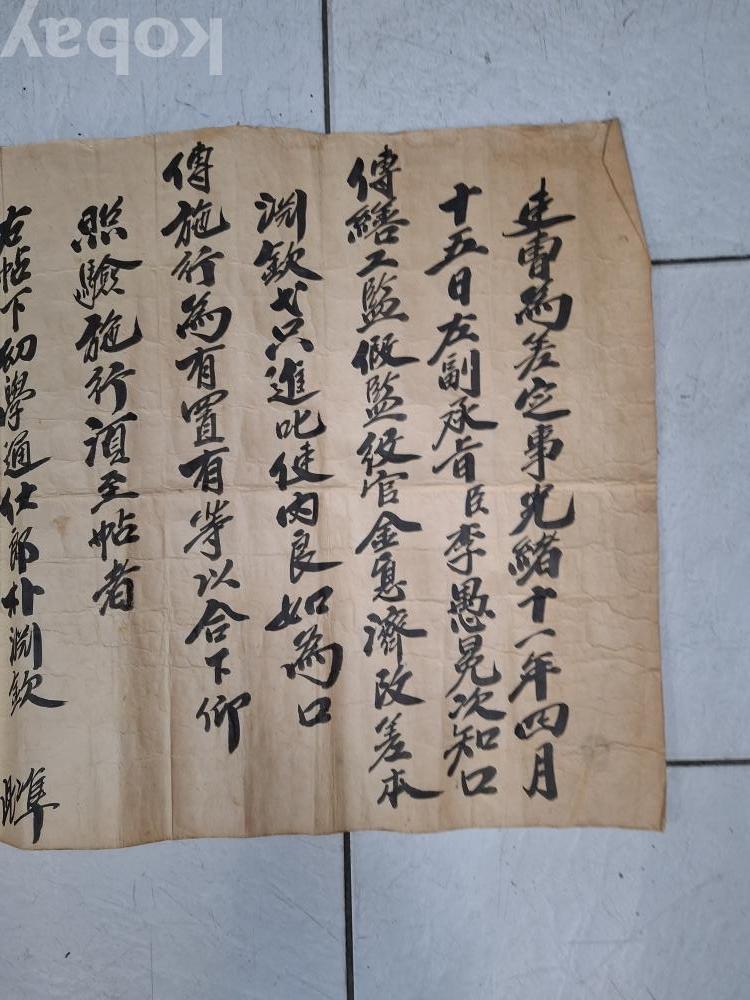 吏曹為差定事光緒十一年四月
十五日左副承旨臣李愚冕次知口
傳繕工監假監役官金濟改差本
渊欽弋只進叱使內良如為口
傳施行為有置有等以合下仰
照驗施行須至帖者
右帖下幼學通仕郎朴渊欽 準
kobay